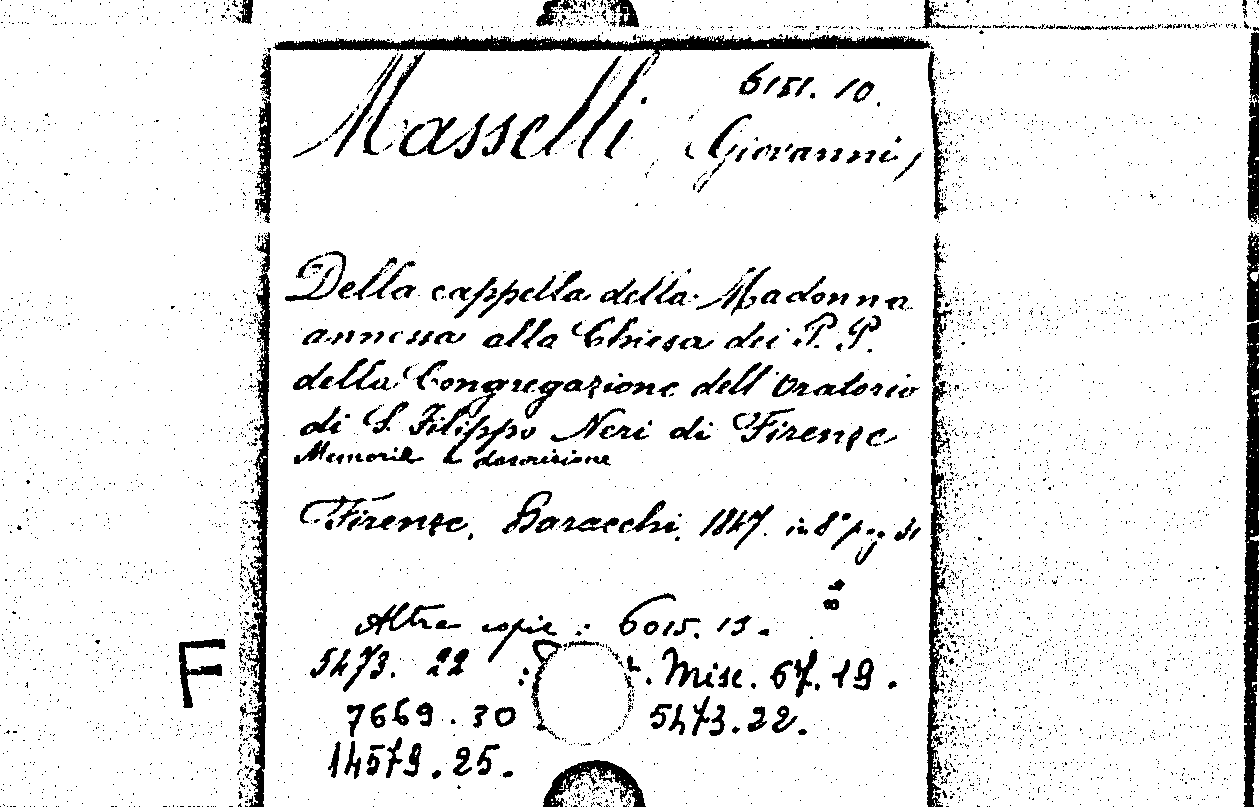 6151. 10.
Masselli (Giovanni)
Della cappella della Madonna
annessa alla Chiesa dei P. P.
della Congregazione dell'Oratorio
di S. Filippo Neri di Firenze
Memorie e descrizione
Firenze, Baracchi, 1847. in 8° pag.
Altre copie : 6015. 13.
5473. 22 Misc. 67. 19.
7669. 30 5473. 22.
14579. 25.
F